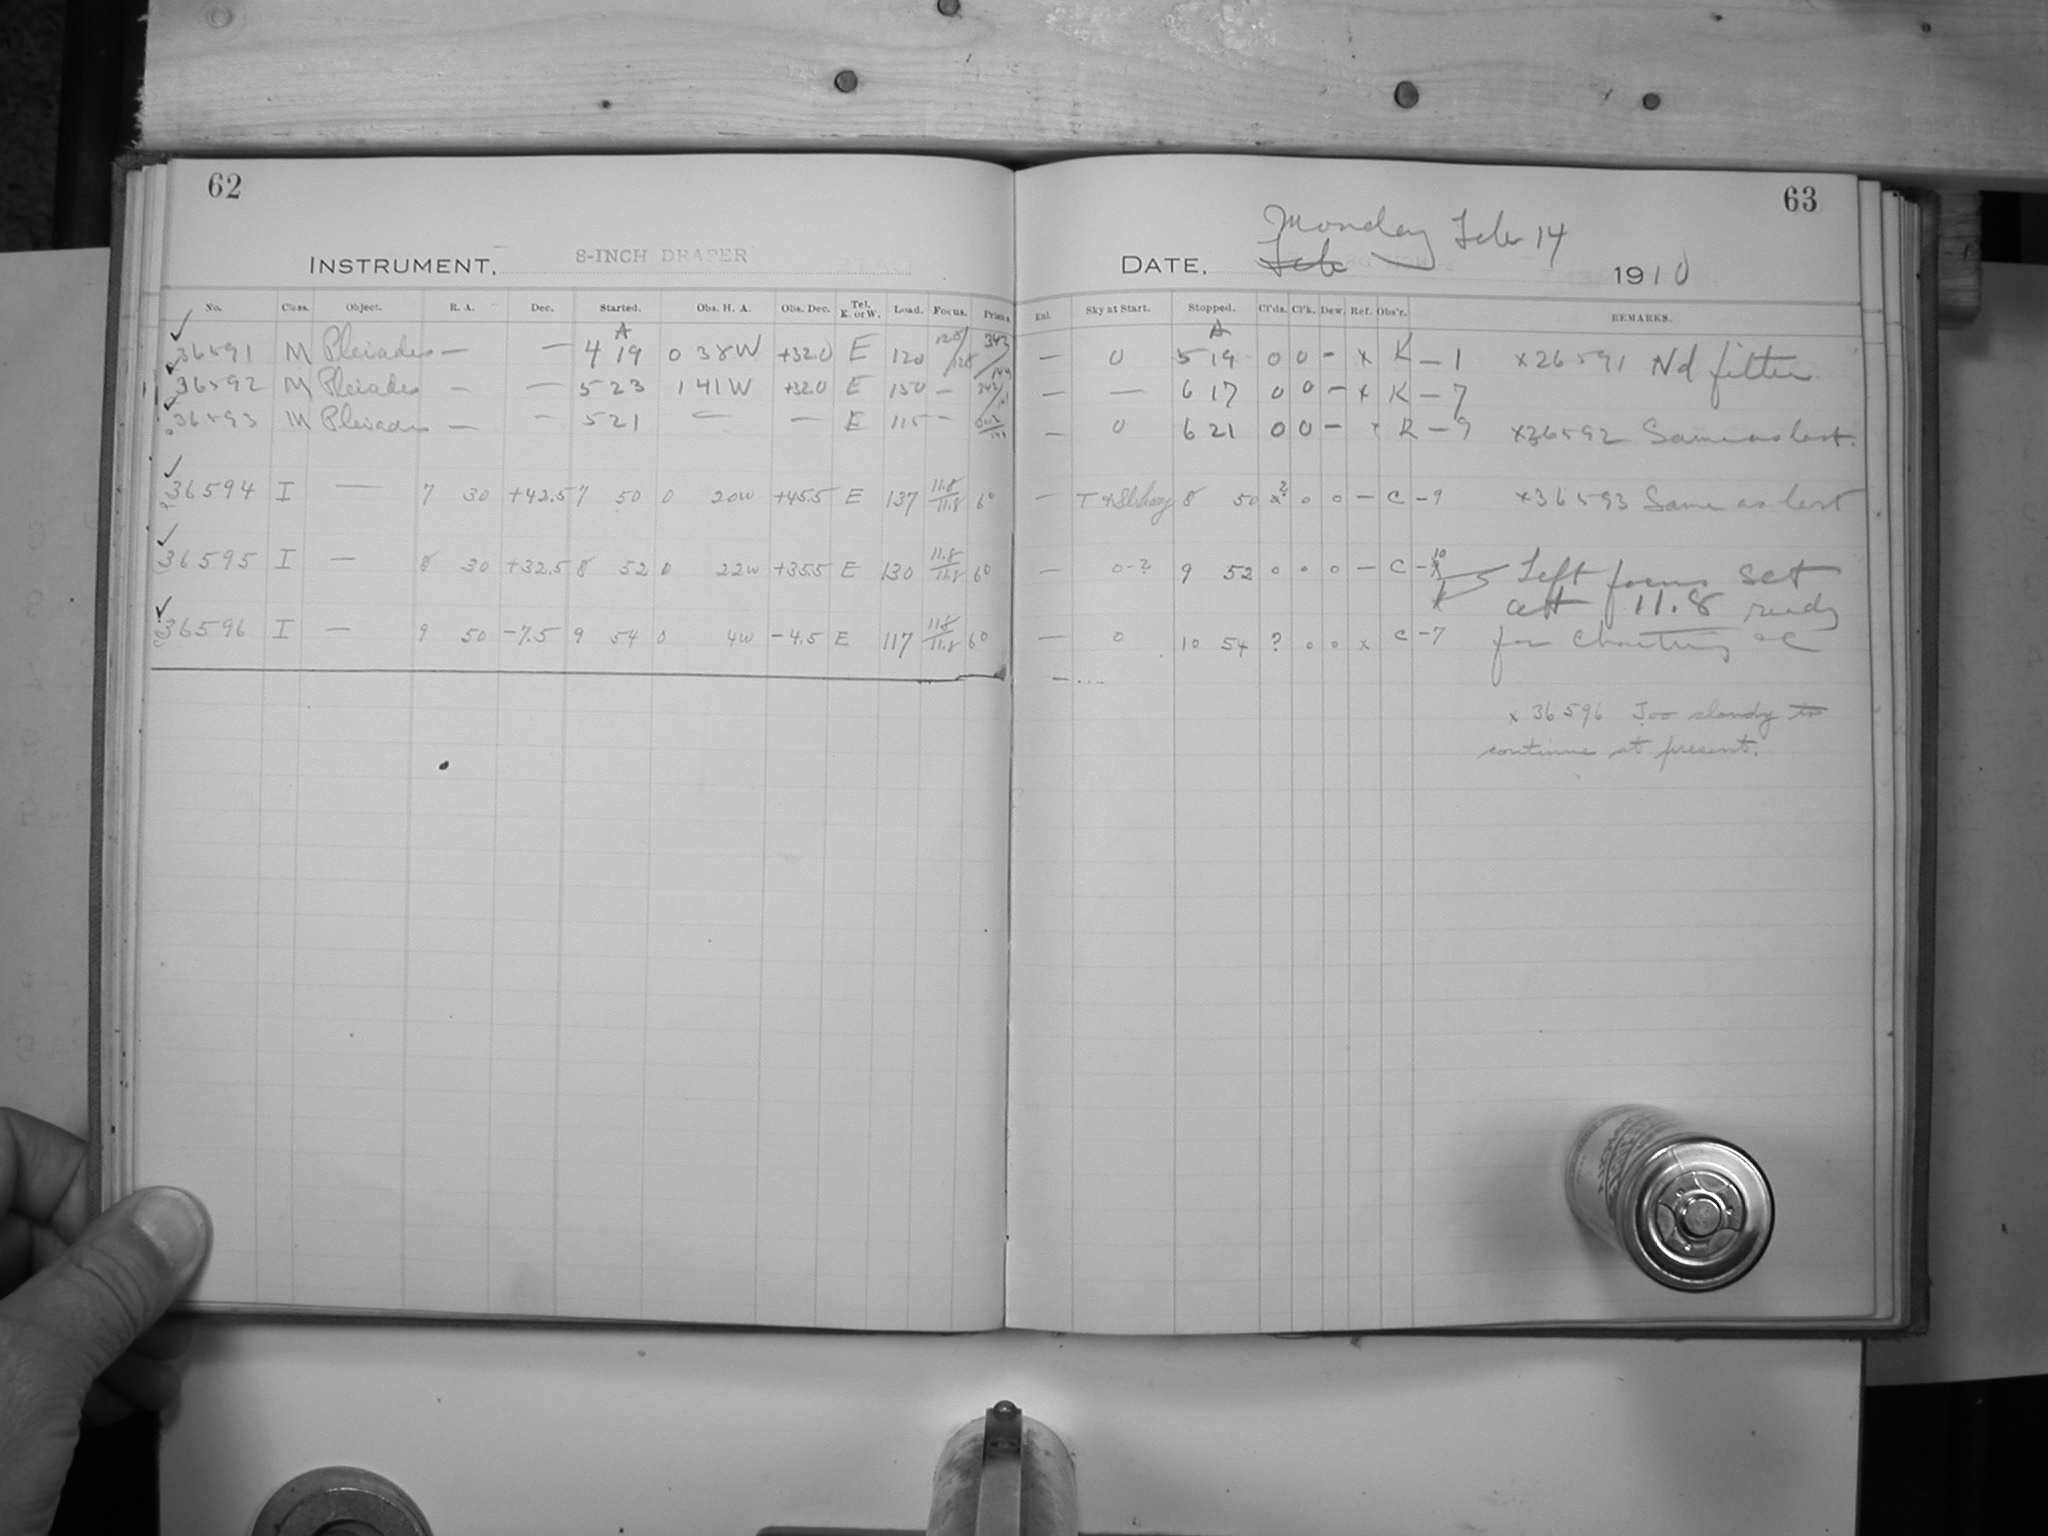 62
INSTRUMENT, 8-INCH DRAPER
No. Class. Object. R. A. Dec. Started. Obs. H. A. Obs. Dec. Tel. E. or W. Load. Focus. Prism.
A
36591 M Pleiades — — 4 19 0 38W +32.0 E 120
36592 M Pleiades — — 5 23 1 41W +32.0 E 150 —
36593 M Pleiades — — 5 21 — — E 115 —
36594 I — 7 30 +42.5 7 50 0 20W +45.5 E 137 11.8/11.8 6°
36595 I — 8 30 +32.5 8 52 0 22W +35.5 E 130 11.8/11.8 6°
36596 I — 9 50 -7.5 9 54 0 4W -4.5 E 117 11.8/11.8 6°
63
Monday Feb 14
DATE, Feb 1910
Enl. Sky at Start. Stopped. Cl'ds. Cl'k. Dew. Ref. Obs'r. REMARKS.
A
— 0 5 19 0 0 — x K — 1 x26591 Nd filter
— — 6 17 0 0 — x K — 7
— 0 6 21 0 0 — K — 9 x36592 Same as last.
— 8 50 x? 0 0 — C — 9 x36593 Same as last
— 0-? 9 52 0 0 0 — C — 10 Left focus set
at 11.8 ready
— 0 10 54 ? 0 0 x C — 7 for Charting
x 36596 Too cloudy to
continue at present.